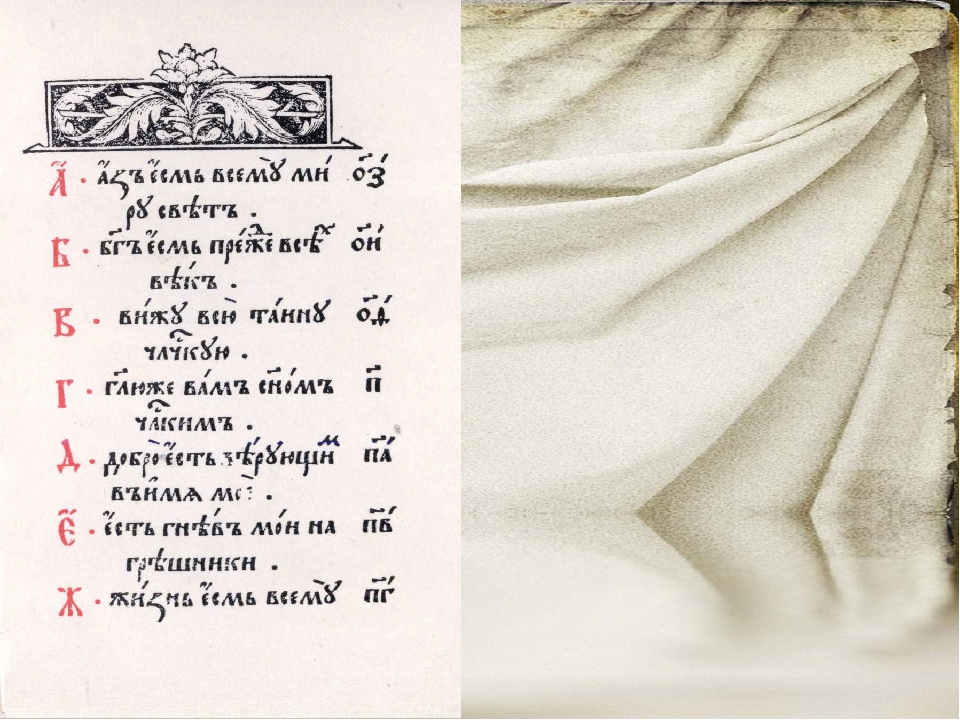 А҃ · а҆́зъ є҆́смь всемꙋ̀ ми́ ѻ҃з
рꙋ свѣ́тъ .
Б · бг҃ъ є҆́смь пре́жⷣе всѣⷯ ѻ҃и
вѣ́къ .
В · ви́жꙋ всю̀ та́йнꙋ ѻ҃ѳ
члч҃скꙋю .
Г · гл҃юже ва́мъ сн҃о́мъ п҃
чл҃скимъ .
Д · добро̀ є҆́сть вѣ́рꙋющиⷨ п҃а
въ и҆́мѧ моѐ .
Є҆ · є҆́сть гнѣ́въ мо́й на п҃в
грѣ́шники .
Ж · жи́знь є҆́смь всемꙋ̀ п҃г